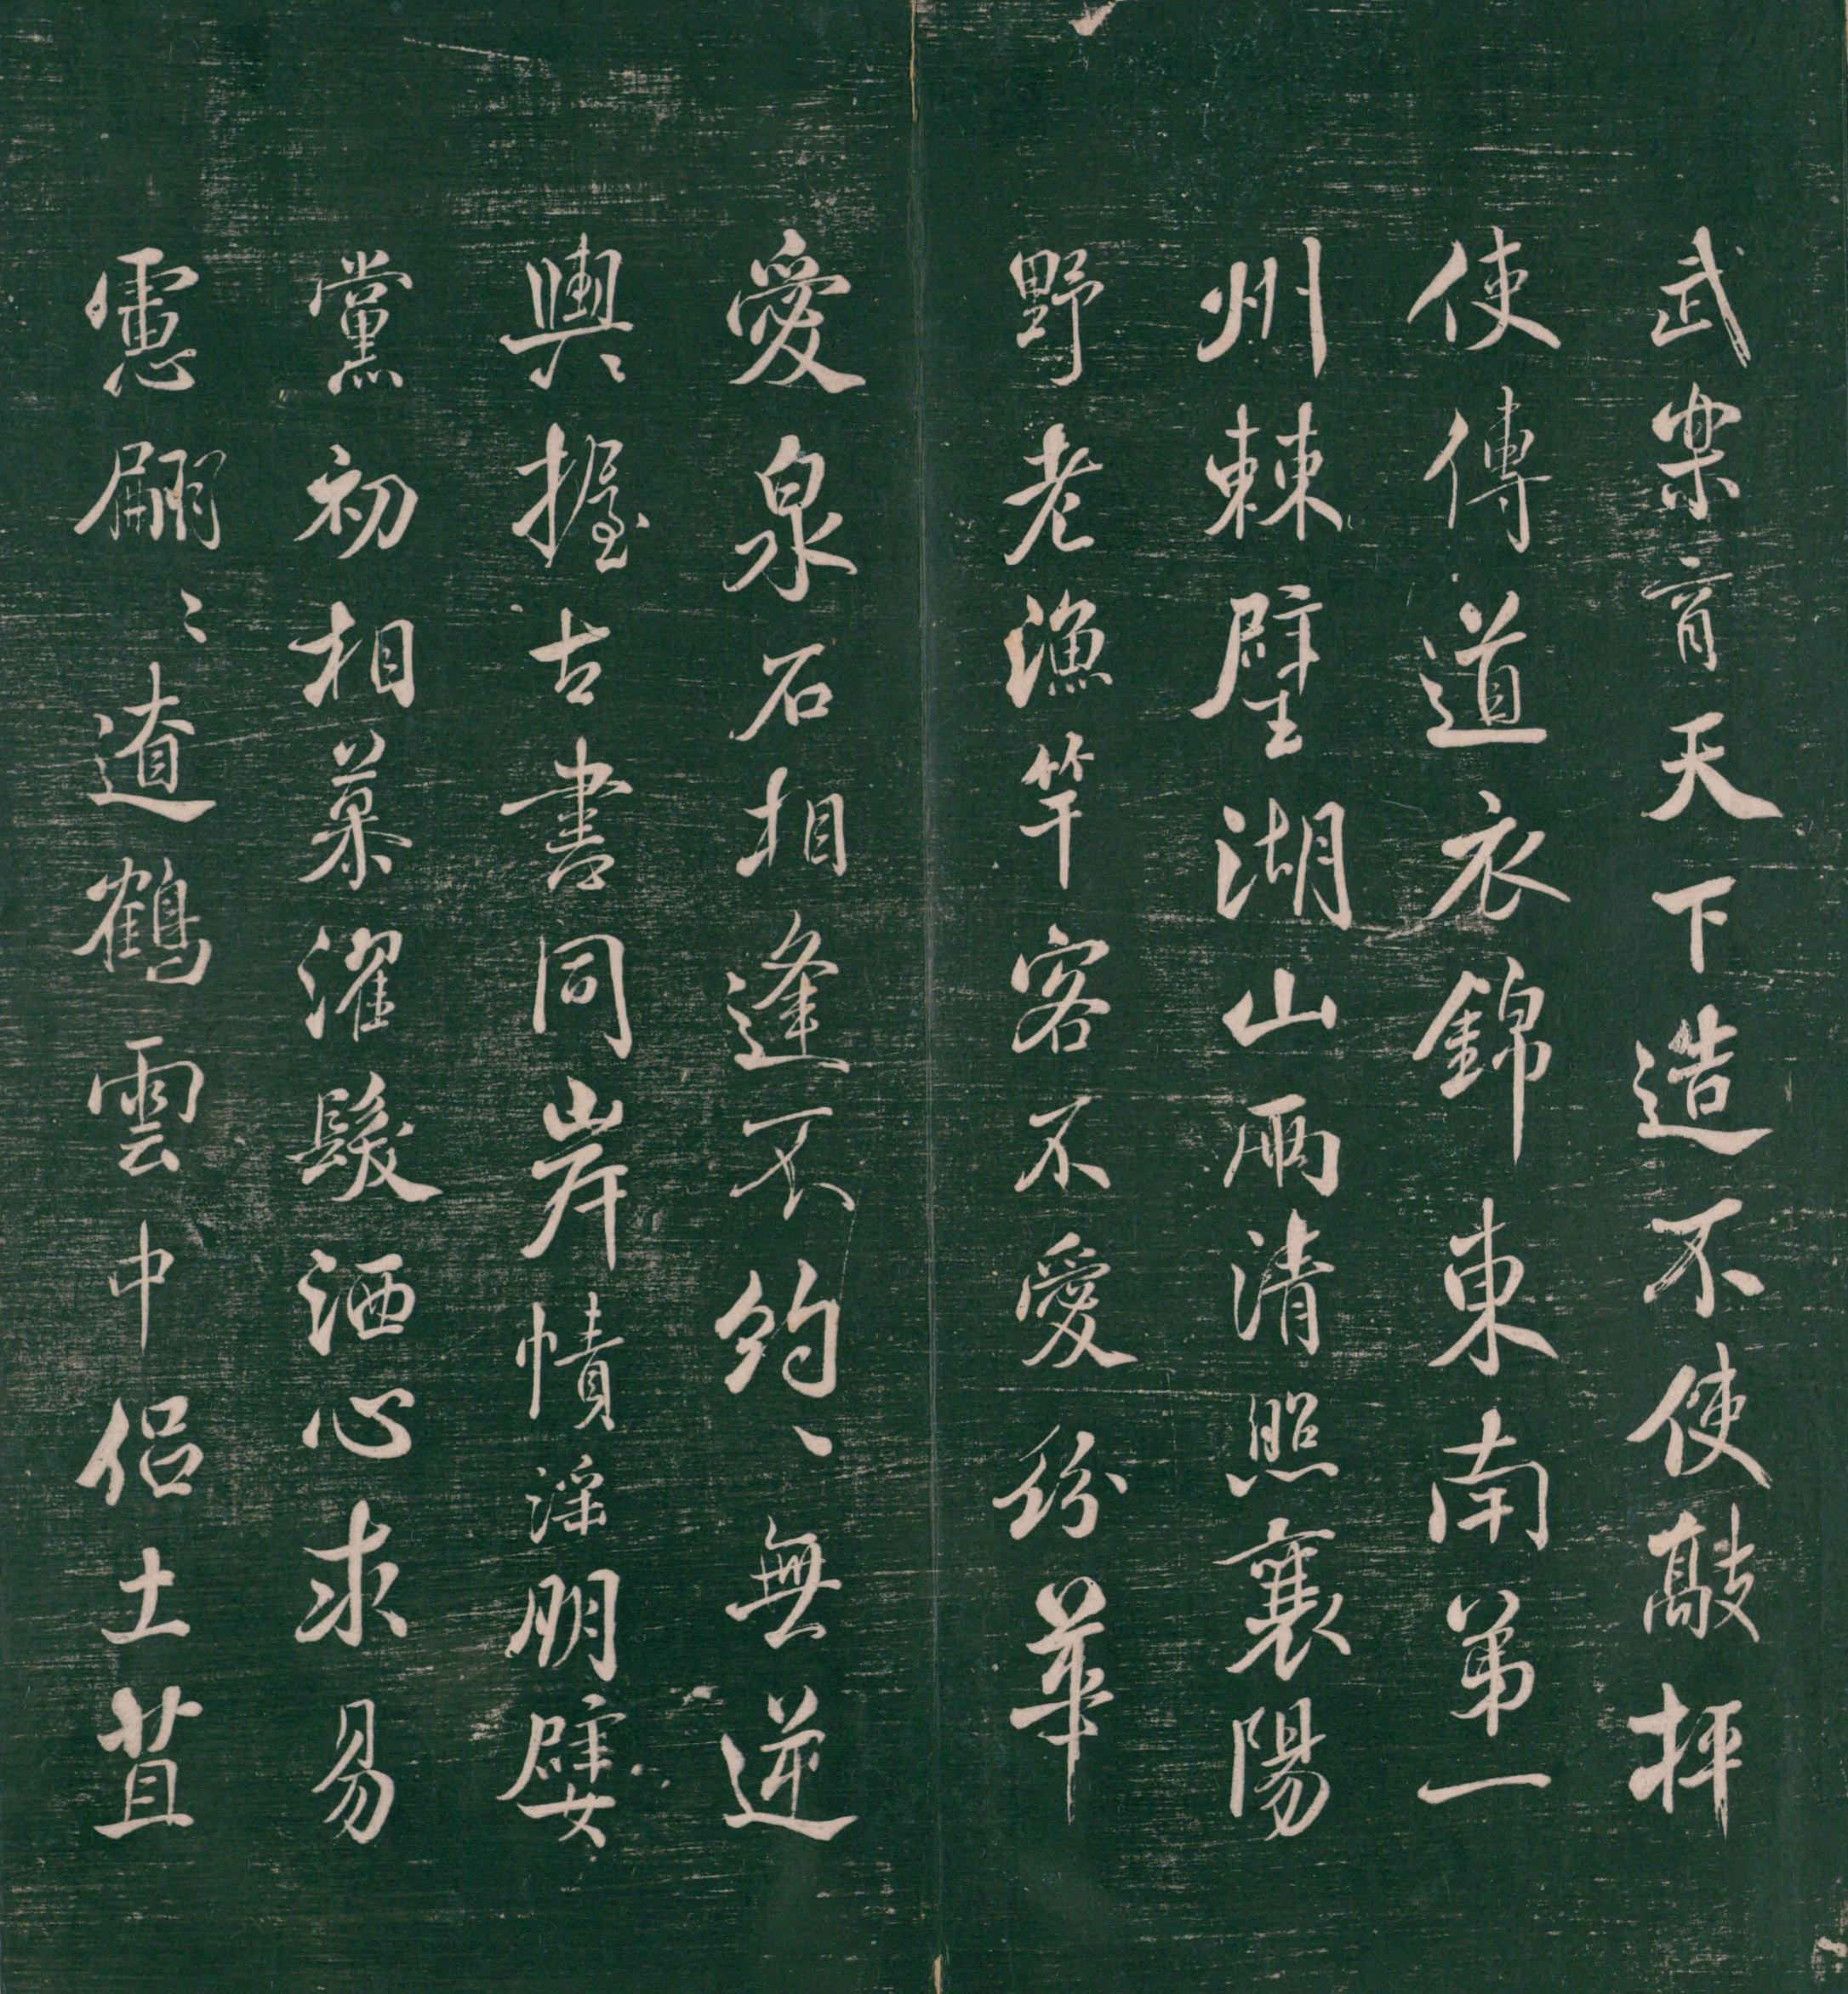 武樂育天下造不使敲抨
使傳道衣錦東南第一
州棘壁湖山兩清照襄陽
野老漁竿客不愛紛華
愛泉石相逢不約々無逆
輿握古書同岸幘淫朋嬖
黨初相慕濯髮洒心求易
慮翩々遼鶴雲中侶土苴